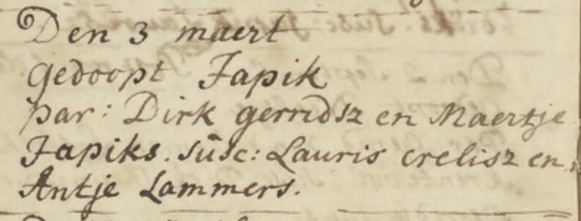 Den 3 maert
gedoopt Japik
par: Dirk gerridsz en Maertje
Japiks. sŭsc: Lauris crelisz en
Antje Lammers.